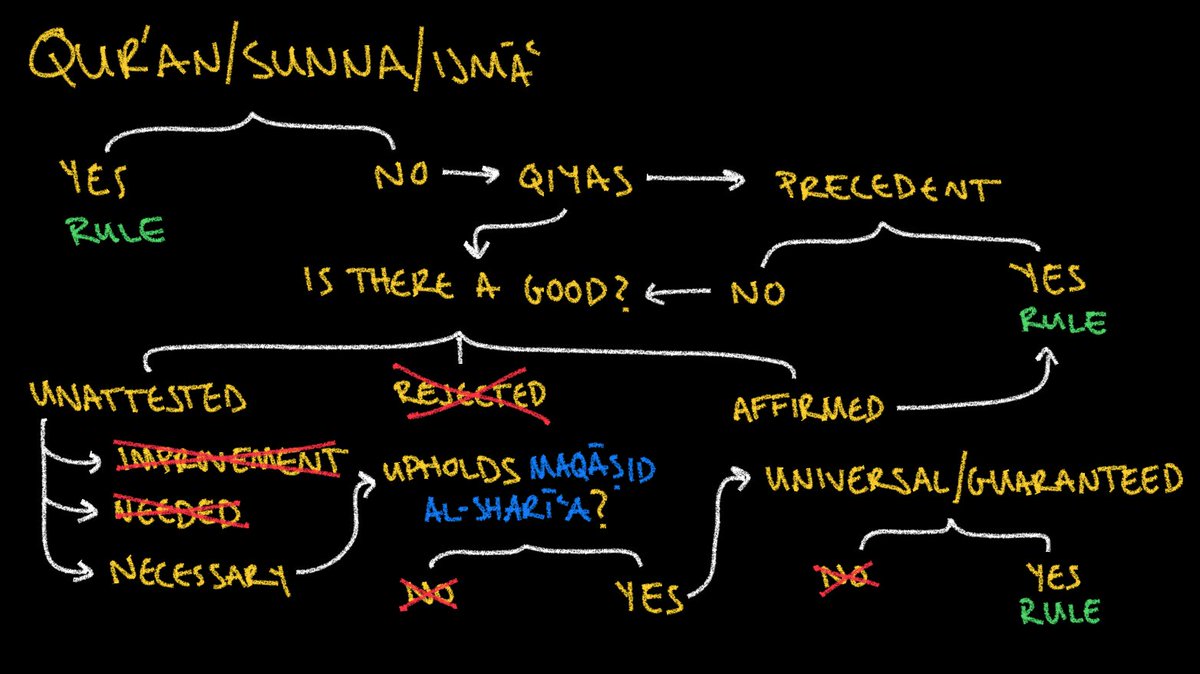 QUR'AN/SUNNA/IJMĀʿ
YES
NO
QIYAS
PRECEDENT
RULE
IS THERE A GOOD?
NO
YES
RULE
UNATTESTED
REJECTED
AFFIRMED
IMPROVEMENT
NEEDED
NECESSARY
UPHOLDS MAQĀṢID
AL-SHARĪʿA?
NO
YES
UNIVERSAL/GUARANTEED
NO
YES
RULE